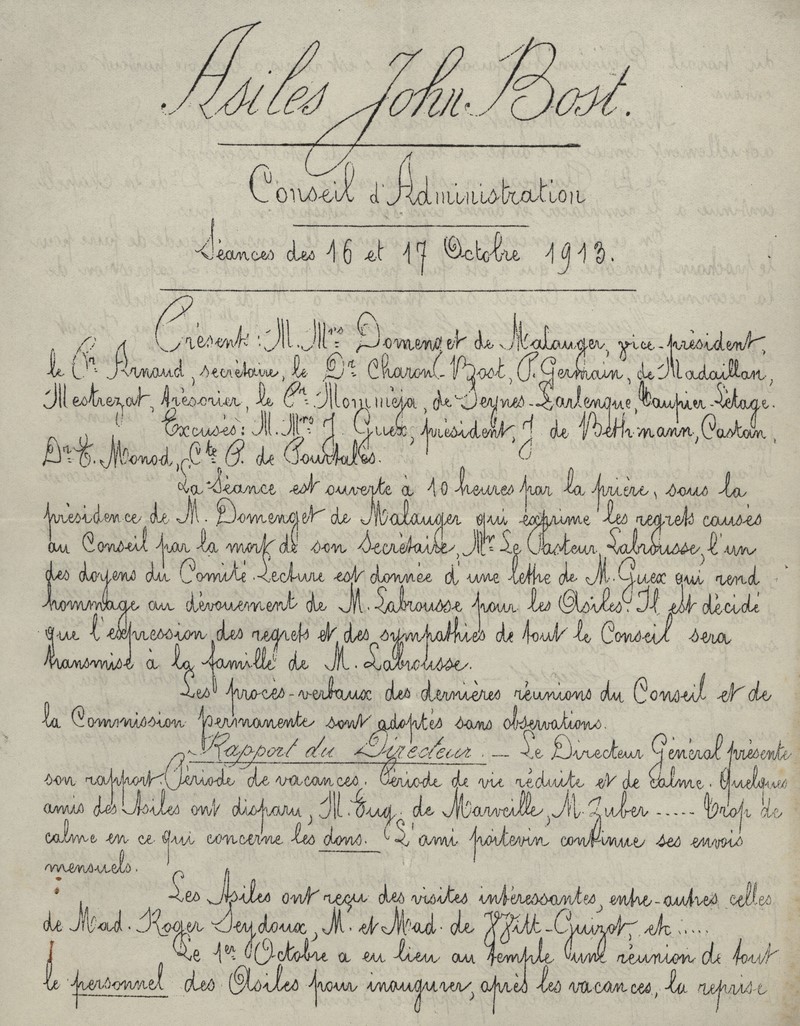 Asiles John Bost.
Conseil d'Administration
Séances des 16 et 17 Octobre 1913.
Présents : M.Mrs Domenget de Malauger, vice-président,
le Pr Arnaud, secrétaire, le Dr Charon-Bost, P. Germain, de Madaillan,
Mestrezat, trésorier, le Pr Monnméja, de Seynes-Larlenque, Taupier-Létage.
Excusés : M.Mrs J. Guex, président, J. de Bethmann, Castan,
Dr E. Monod, Cte P. de Pourtalès.
La Séance est ouverte à 10 heures par la prière, sous la
présidence de M. Domenget de Malauger qui exprime les regrets causés
au Conseil par la mort de son Secrétaire, Mr Le Pasteur Labrousse, l'un
des doyens du Comité. Lecture est donnée d'une lettre de M. Guex qui rend
hommage au dévouement de M. Labrousse pour les Asiles. Il est décidé
que l'expression des regrets et des sympathies de tout le Conseil sera
transmise à la famille de M. Labrousse.
Les procès-verbaux des dernières réunions du Conseil et de
la Commission permanente sont adoptés sans observations.
Rapport du Directeur. — Le Directeur Général présente
son rapport. Période de vacances. Période de vie réduite et de calme. Quelques
amis des Asiles ont disparu, M. Eug. de Marveille, M. Zuber ..... Trop de
calme en ce qui concerne les dons. L'ami poitevin continue ses envois
mensuels.
Les Asiles ont reçu des visites intéressantes, entre autres celles
de Mad. Roger Seydoux, M. et Mad. de Witt-Guizot, etc .....
Le 1er Octobre a eu lieu au temple une réunion de tout
le personnel des Asiles pour inaugurer, après les vacances, la reprise